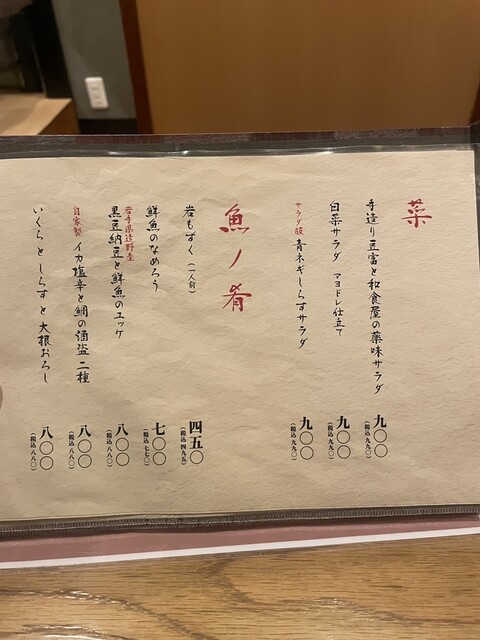 菜
手造り豆富と和食屋の薬味サラダ
九〇〇
(税込 九九〇)
白菜サラダ マヨドレ仕立て
九〇〇
(税込 九九〇)
サラダ版 青ネギしらすサラダ
九〇〇
(税込 九九〇)
魚ノ肴
岩もずく (一人前)
四五〇
(税込 四九五)
鮮魚のなめろう
七〇〇
(税込 七七〇)
岩手県遠野産
黒豆納豆と鮮魚のユッケ
八〇〇
(税込 八八〇)
自家製 イカ塩辛と鯛の酒盗 二種
八〇〇
(税込 八八〇)
いくらとしらすと大根おろし
八〇〇
(税込 八八〇)